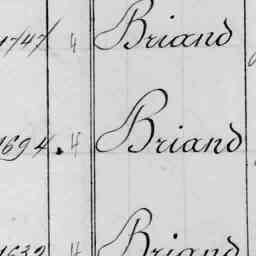 1747 4 Briand
1694 . 4 Briand
1639 4 Briand